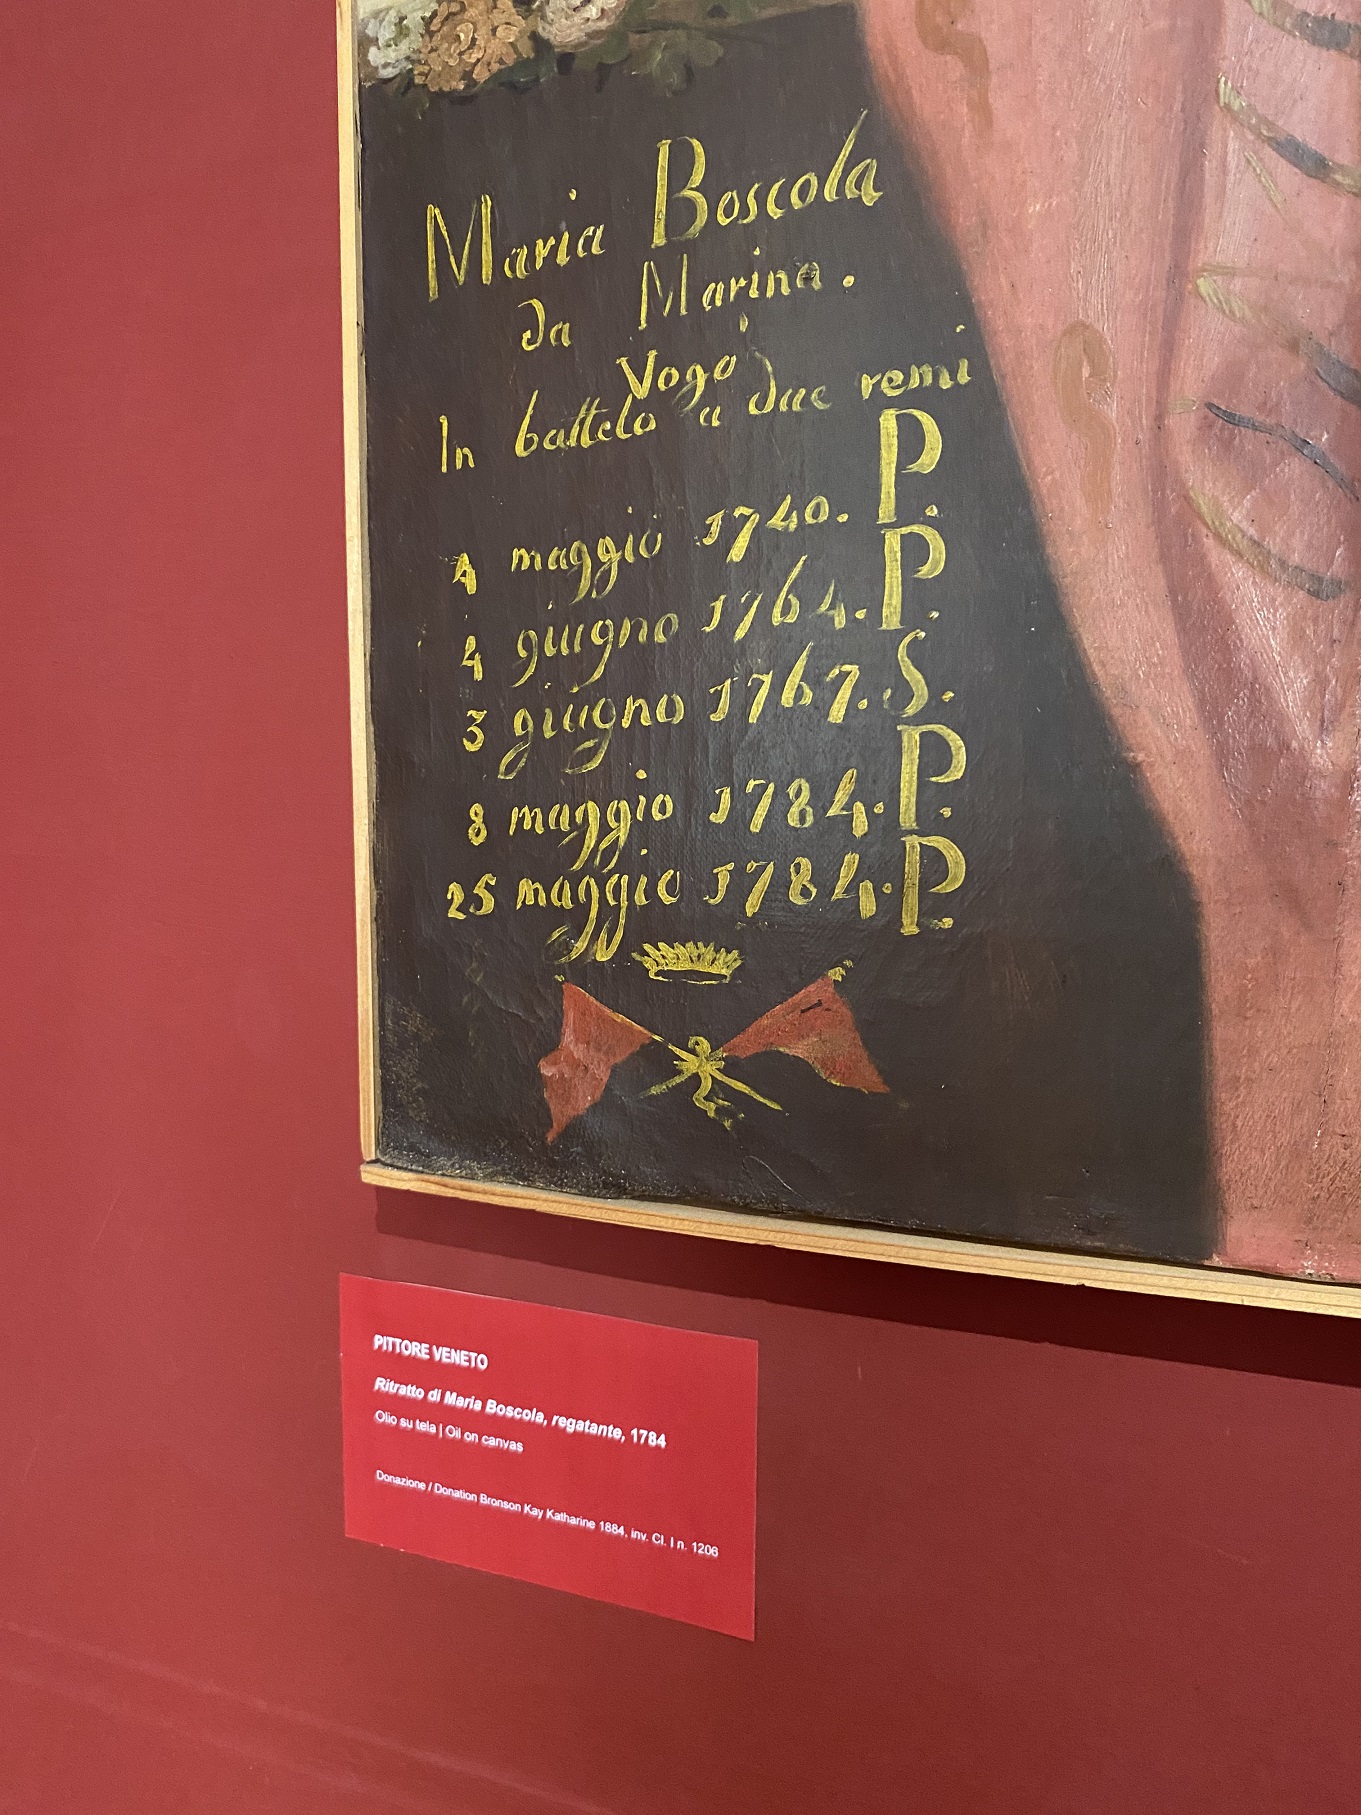 Maria Boscola
da Marina.
Vogò
In battelo a due remi
4 maggio 1740. P.
4 giugno 1764. P.
3 giugno 1767. S.
8 maggio 1784. P.
25 maggio 1784. P.
PITTORE VENETO
Ritratto di Maria Boscola, regatante, 1784
Olio su tela | Oil on canvas
Donazione / Donation Bronson Kay Katharine 1884, inv. Cl. I n. 1206